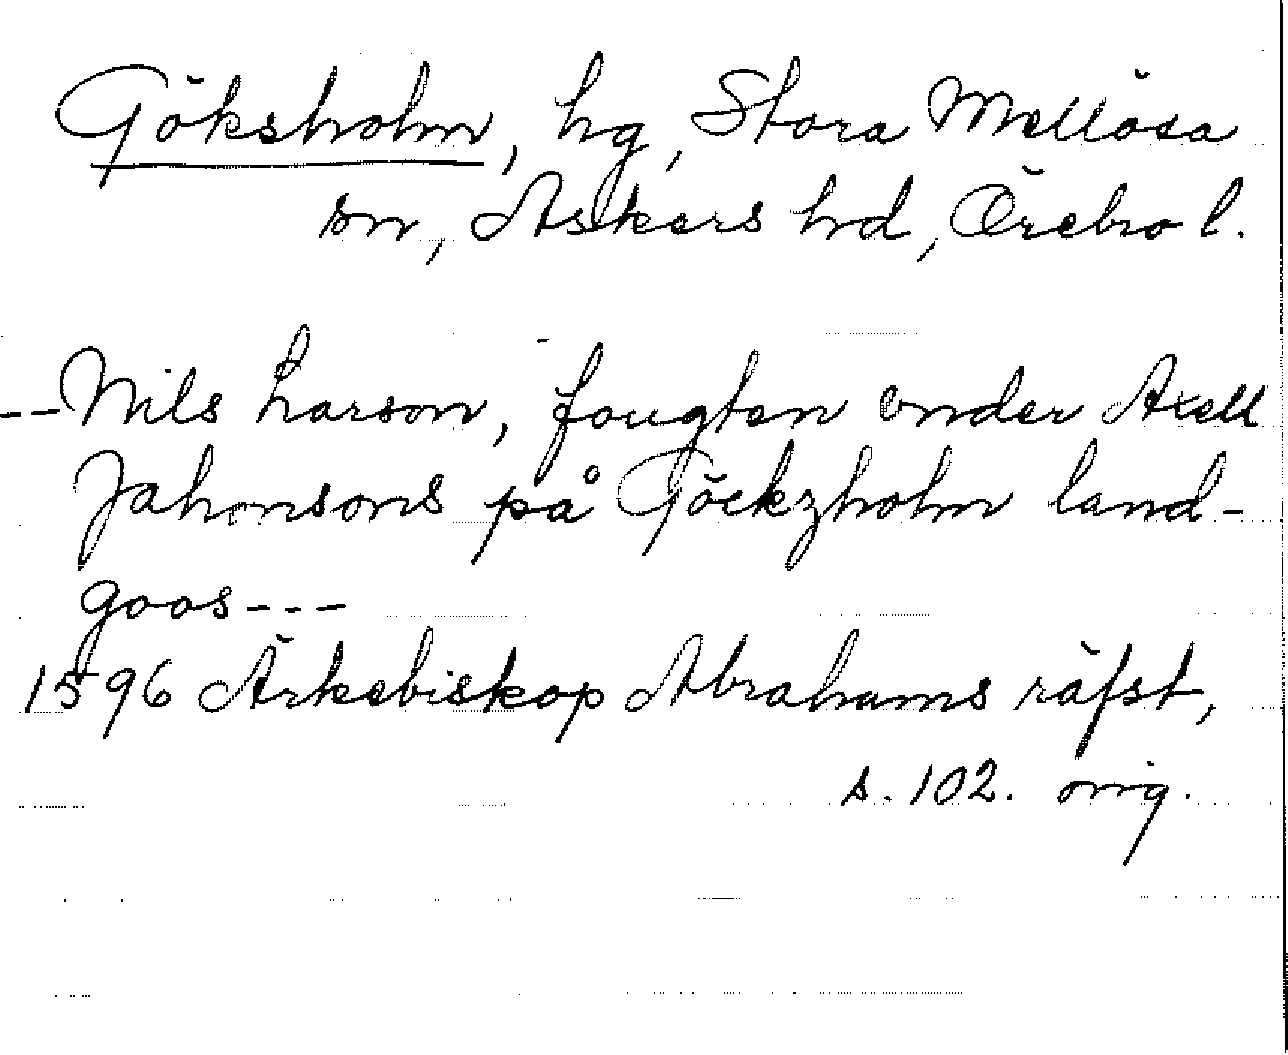 Göksholm, hg, Stora Mellösa
sn, Askers hd, Örebro l.
--Nils Larson, fougten onder Axell
Jahonsons på Göckzholm land-
goos---
1596 Ärkebiskop Abrahams räfst,
s. 102. orig.